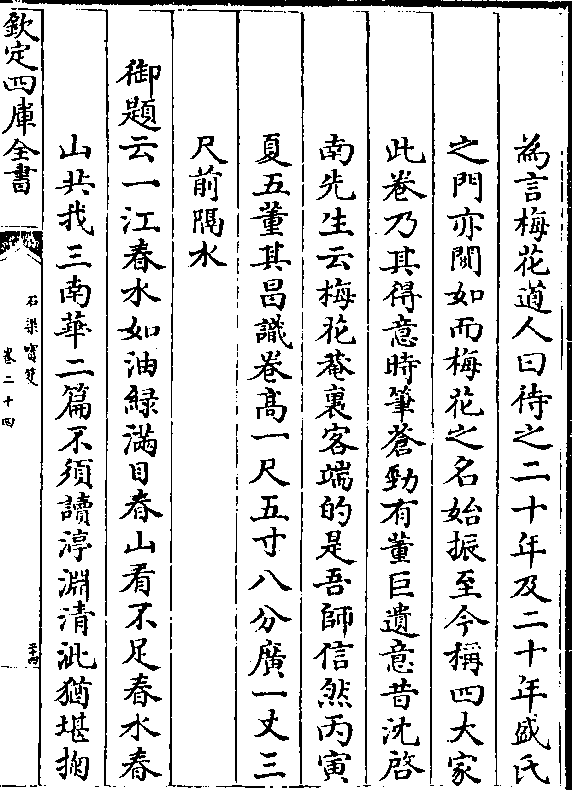 為言梅花道人曰待之二十年及二十年盛氏
之門亦闃如而梅花之名始振至今稱四大家
此卷乃其得意時筆蒼勁有董巨遺意昔沈啓
南先生云梅花菴裏客端的是吾師信然丙寅
夏五董其昌識卷髙一尺五寸八分廣一丈三
尺前隔水
御題云一江春水如油緑滿目春山看不足春水春
山共我三南華二篇不須讀渟淵清泚猶堪掬
欽定四庫全書
石渠寶笈
卷二十四